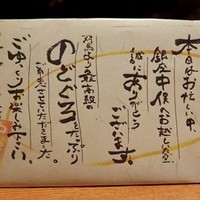 本日はお忙しい中、
誠にありがとう
ございます。
対馬より最高級の
のどぐろをたっぷり
ご用意させていただきました。
ごゆっくりお楽しみ下さい。